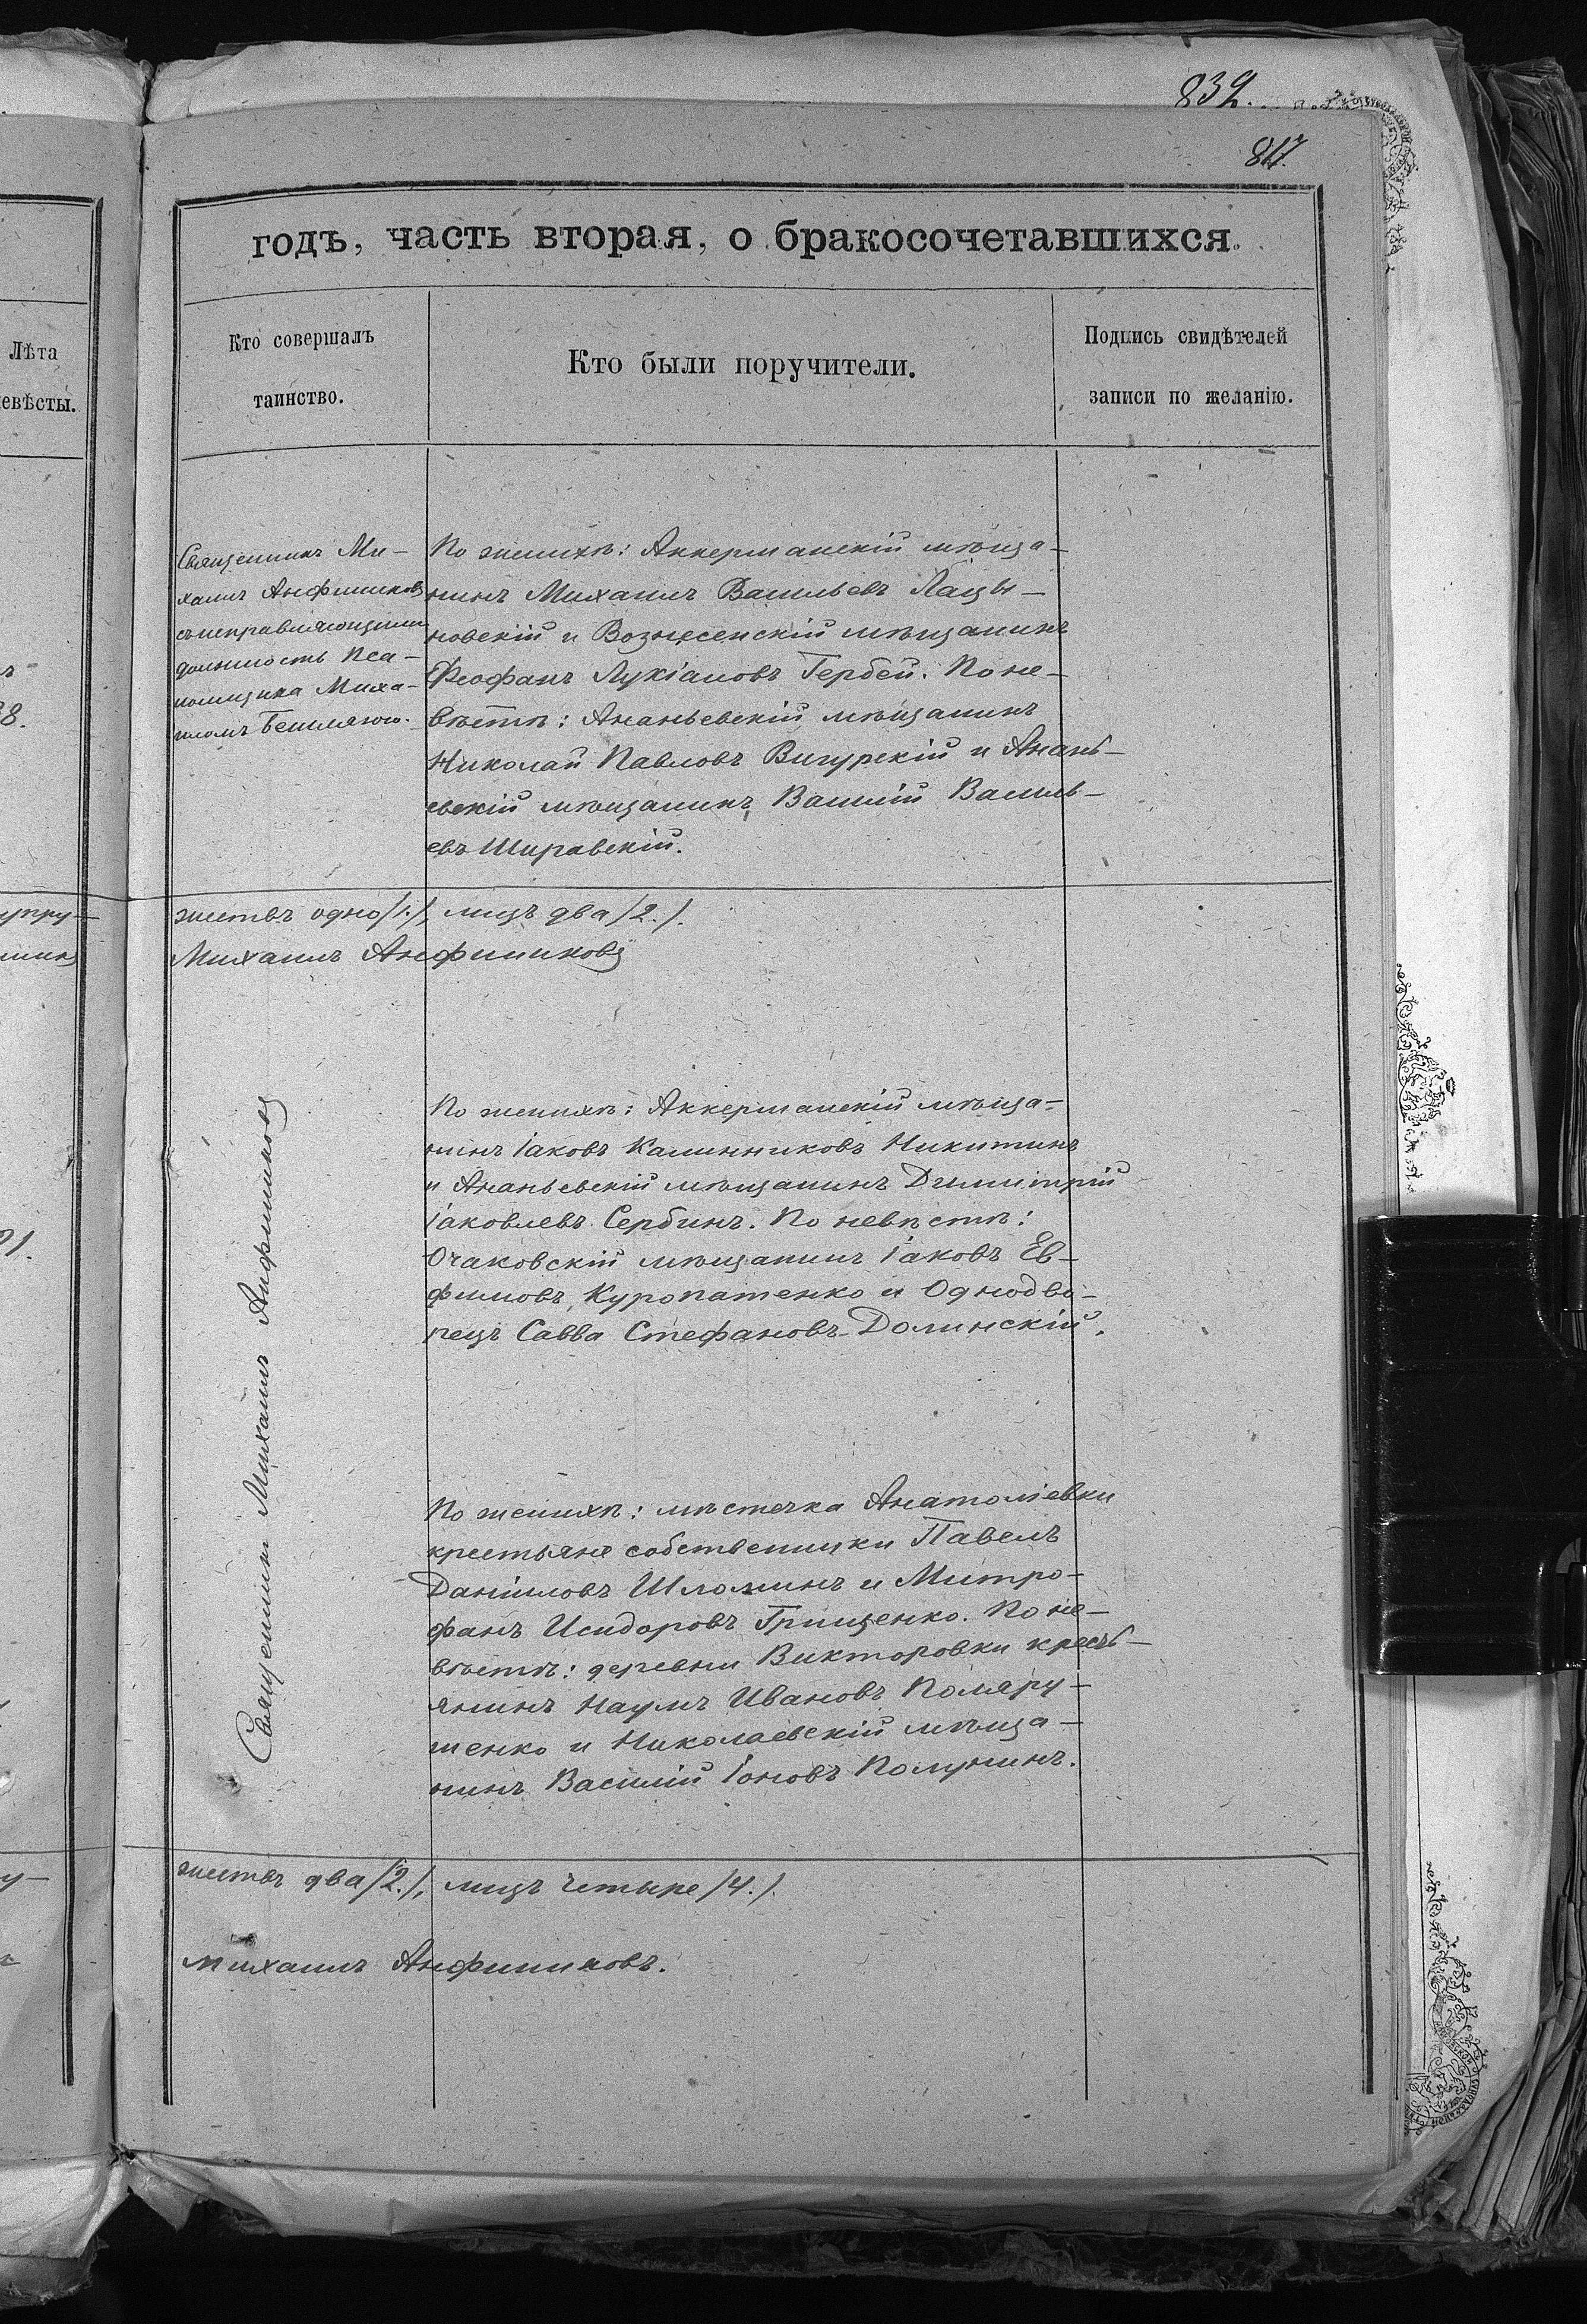 839.
817.
Лѣта
невѣсты.
годъ, часть вторая, о бракосочетавшихся.
Кто совершалъ
таинство.
Кто были поручители.
Подпись свидѣтелей
записи по желанію.
Священникъ Ми-
хаилъ Анфиниковъ
съ исправляющимъ
должность Пса-
ломщика Миха-
иломъ
По женихѣ: Аккерманскій мѣща-
нинъ Михаилъ Васильевъ Лацы-
новскій и Вознесенскій мѣщанинъ
Феофанъ Лукіановъ Гербей. По не-
вѣстѣ: Ананьевскій мѣщанинъ
Николай Павловъ Вигурскій и Анань-
евскій мѣщанинъ Василій Василь-
евъ Ширавскій.
жествъ одно /1./, лицъ два /2./.
Михаилъ Анфиниковъ
Священникъ Михаилъ Анфиниковъ
По женихѣ: Аккерманскій мѣща-
нинъ Іаковъ Калинниковъ Никитинъ
и Ананьевскій мѣщанинъ Димитрій
Іаковлевъ Сербинъ. По невѣстѣ:
Очаковскій мѣщанинъ Іаковъ Ев-
фимовъ Куропатенко и Однодво-
рецъ Савва Стефановъ Долинскій.
По женихѣ: мѣстечка Анатоліевки
крестьяне собственники Павелъ
Даніиловъ Шломинъ и Митро-
фанъ Исидоровъ Грищенко. По не-
вѣстѣ: деревни Викторовки кресть-
янинъ Наумъ Ивановъ Поляру-
шенко и Николаевскій мѣща-
нинъ Василій Іоновъ Полунинъ.
жествъ два /2./, лицъ четыре /4./.
Михаилъ Анфиниковъ.